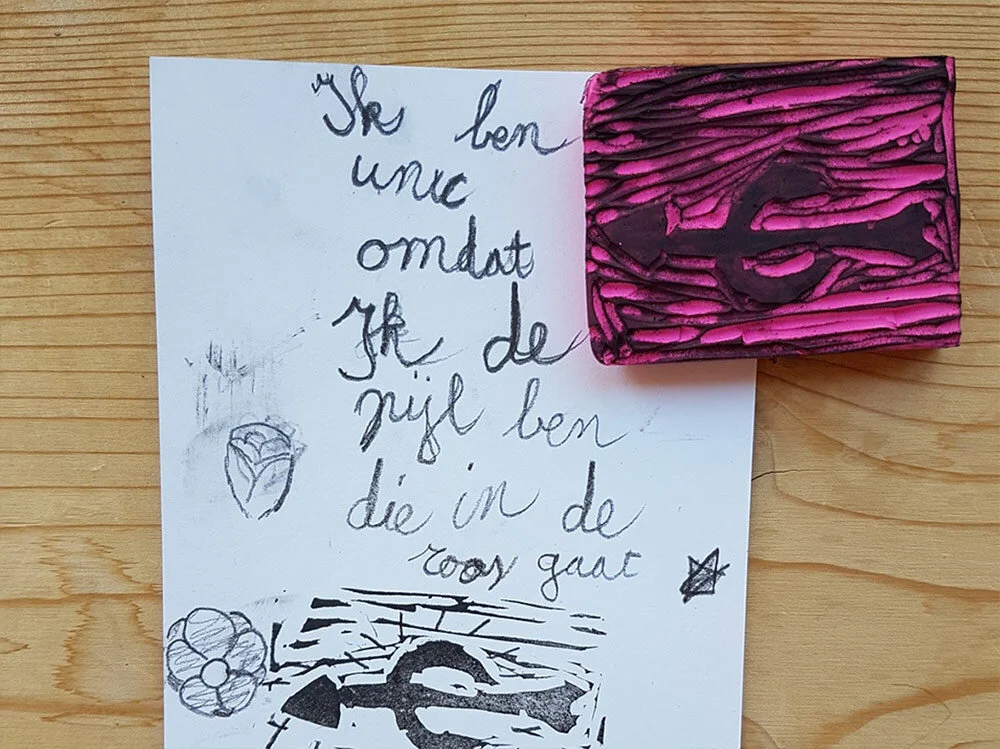 Ik ben
unic
omdat
Ik de
pijl ben
die in de
roos gaat